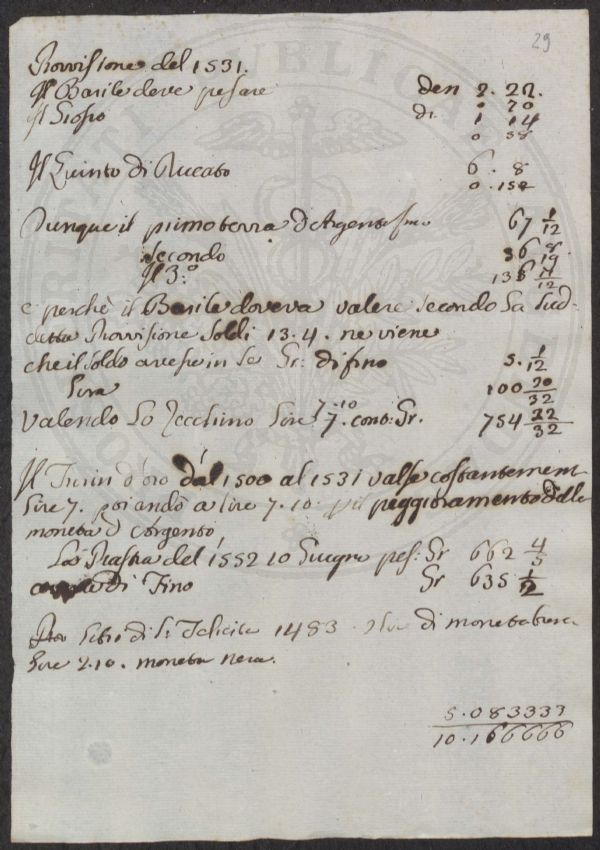 29
Provvisione del 1531.
Il Barile deve pesare den 2. 22.
0 70
Il Grosso di 1 14
0 38
Il Quinto di Ducato 6. 8
0. 152
Dunque il primo terrà d'Argento fino 67 1/12
Secondo 36
Il 3.o
e perchè il Barile doveva valere secondo la Sud-
detta Provvisione Soldi 13.4. ne viene
che il soldo avesse in se Gr: di fino 5. 1/12
Lira 100 20/32
Valendo Lo Zecchino Lire 7. cont: Gr. 754 22/32
7.10
Il Fiorin d'oro dal 1500 al 1531 valse costantemen
Lire 7. poi andò a lire 7.10. pel peggioramento delle
monete d'Argento,
La Piastra del 1552 10 Giugno pes: Gr 662 4/5
di Fino Gr 635 1/12
Libro di S. Felicita 1483. di moneta
Lire 2.10. moneta nera.
5.083333
10.166666